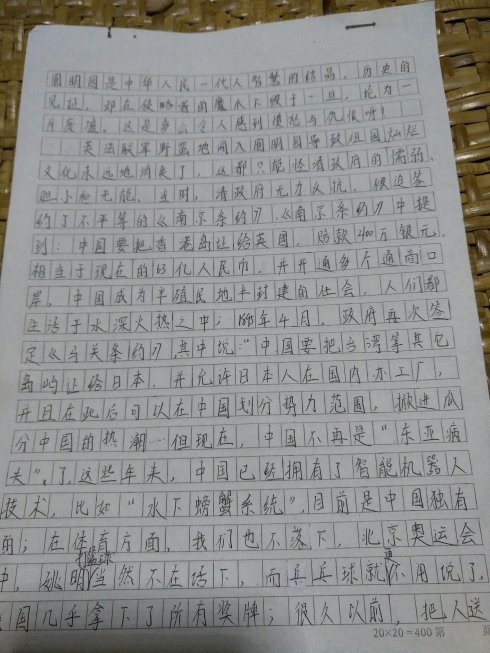 圆明园是中华人民一代人智慧的结晶，历史的
见证，却在侵略者的魔爪下毁于一旦，沦为一
片废墟。这是多么令人感到愤怒与仇恨呀！
英法联军野蛮地闯入圆明园导致祖国灿烂
文化永远地消失了，这都只能怪清政府的懦弱、
胆小和无能。当时，清政府无力反抗，被迫签
约了不平等的《南京条约》，《南京条约》中提
到：中国要把香港岛让给英国，赔款400万银元，
相当于现在的63亿人民币，并开通多个通商口
岸，中国成为半殖民地半封建的社会，人们都
生活于水深火热之中；1895年4月，政府再次签
定《马关条约》，其中说："中国要把台湾等其它
岛屿让给日本，并允许日本人在国内办工厂，
并且在此后可以在中国划分势力范围，掀进瓜
分中国的热潮…但现在，中国不再是"东亚病
夫"了，这些年来，中国已经拥有了智能机器人
技术，比如"水下螃蟹系统"，目前是中国独有
的；在体育方面，我们也不落下，北京奥运会
中，姚明打篮球当然不在话下，而乒乓球就更不用说了，
国几乎拿下了所有奖牌；很久以前，把人送
20×20=400 第 页